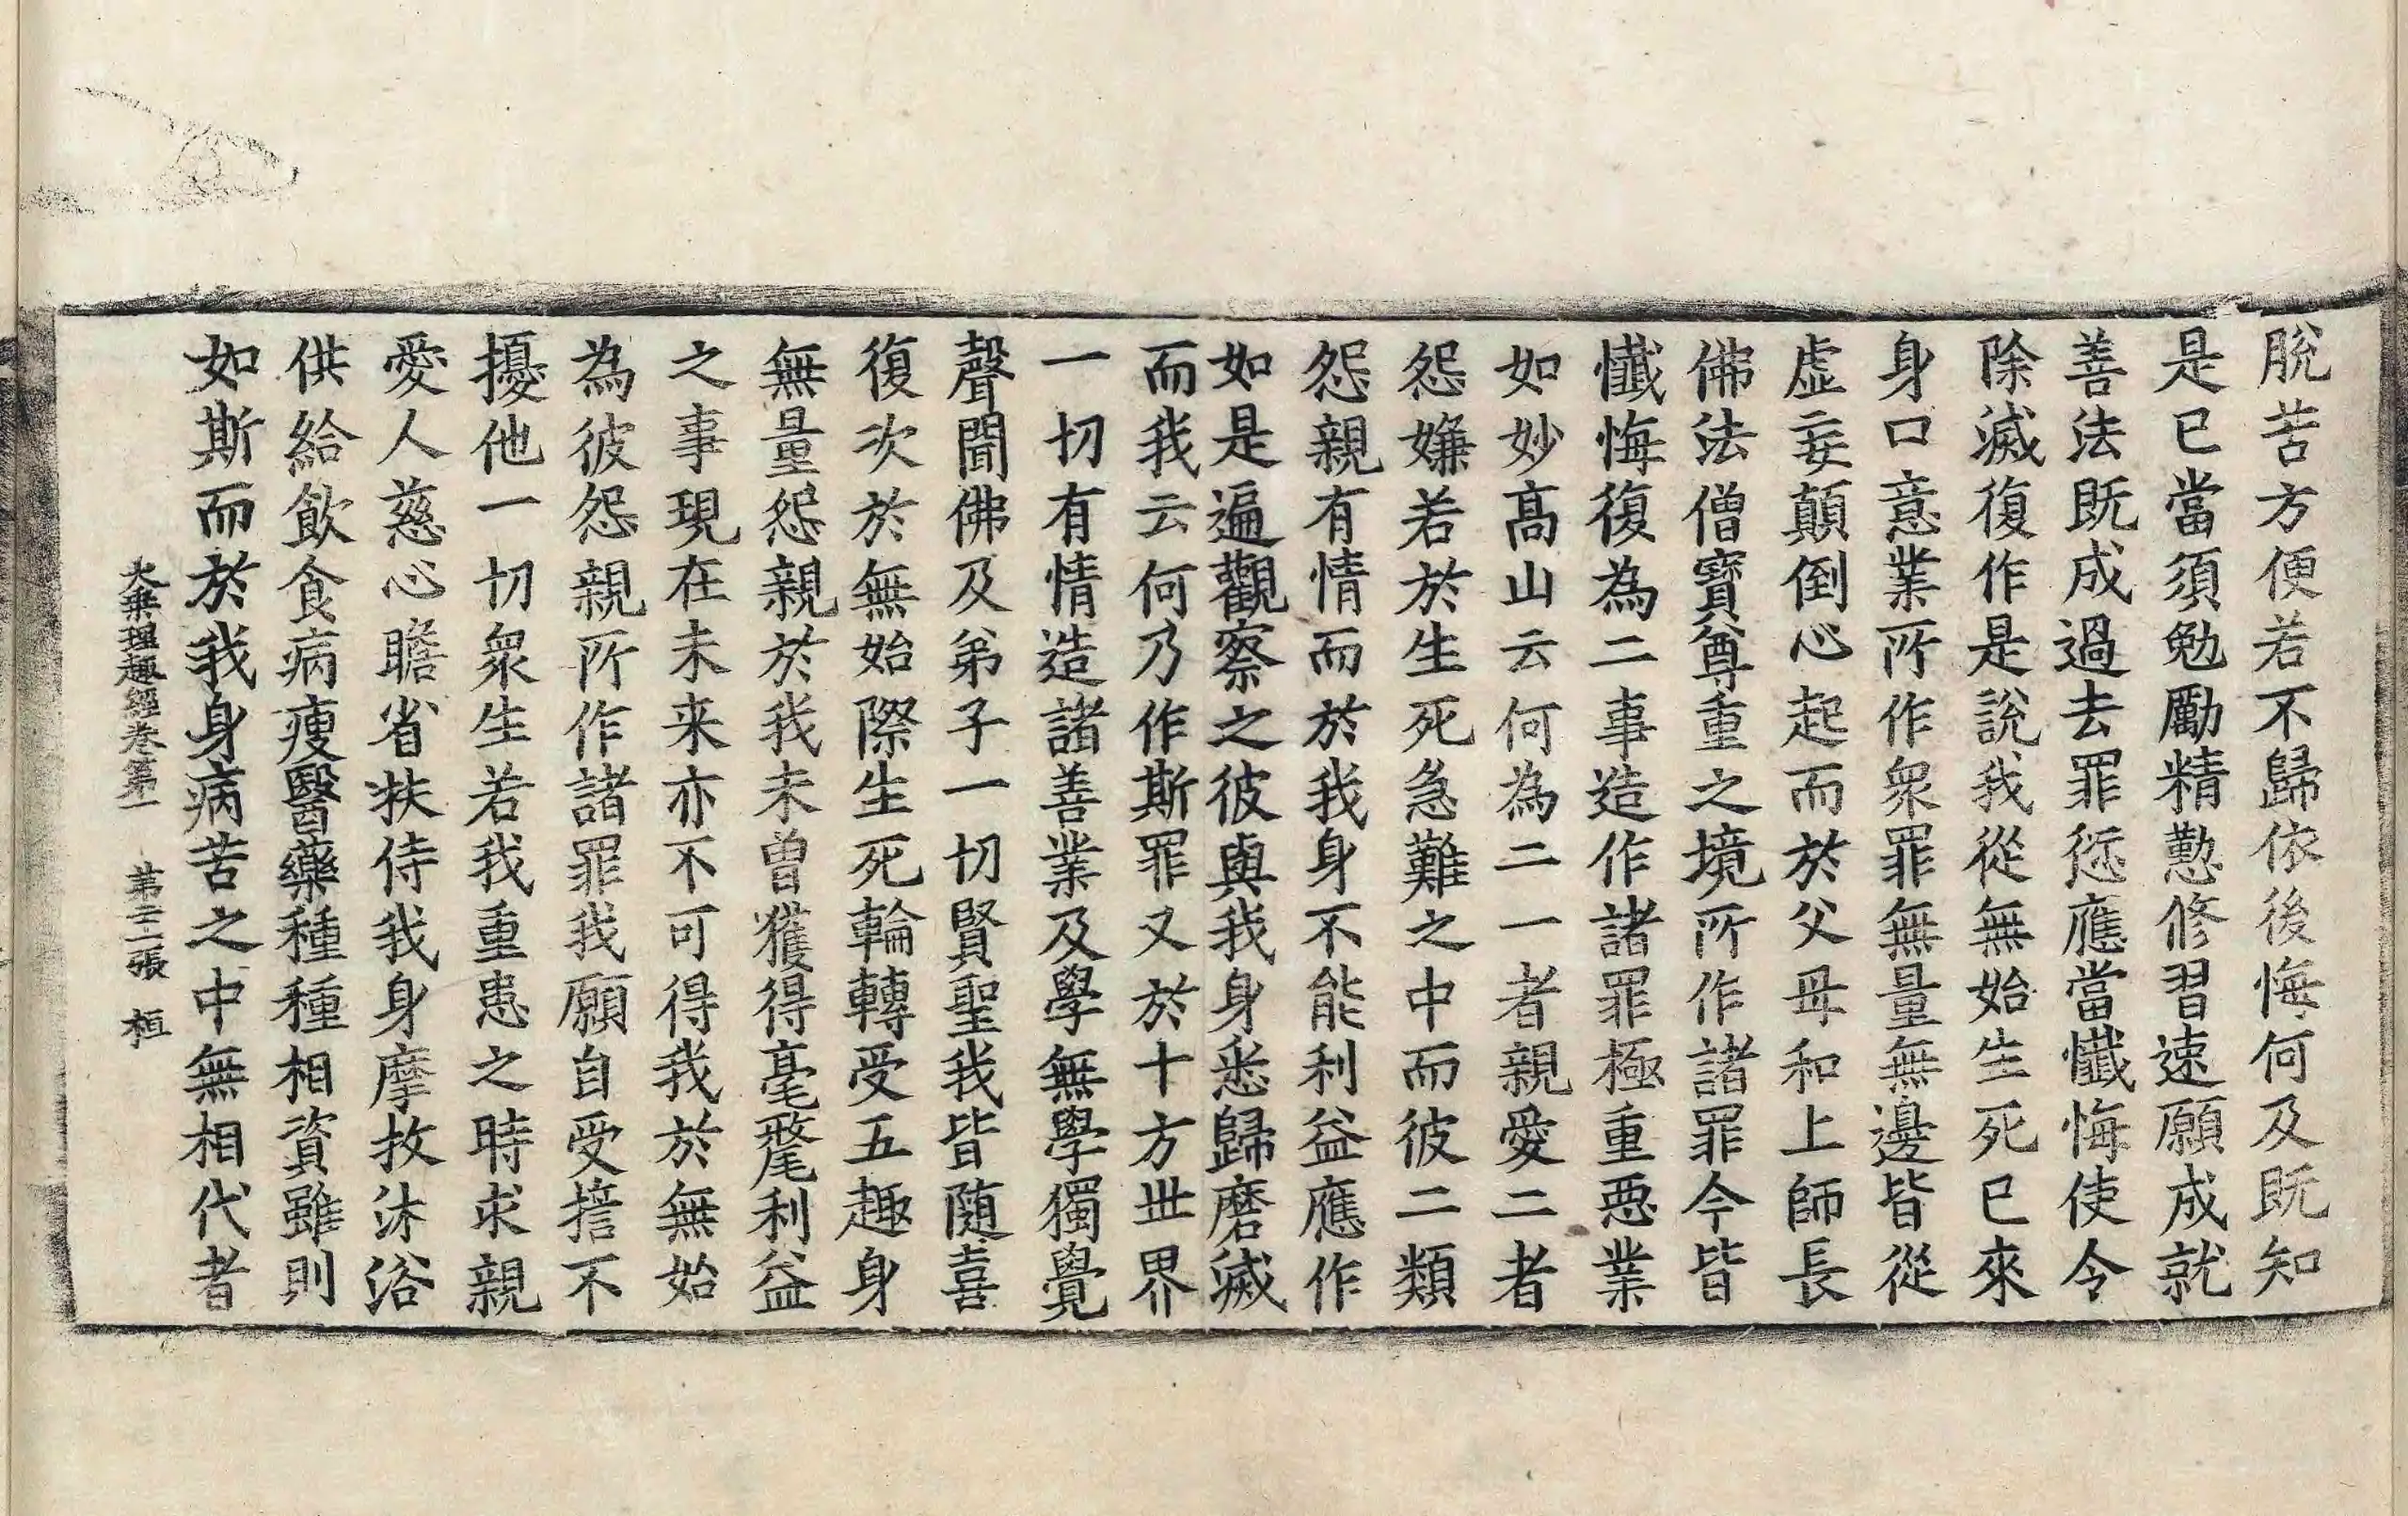 脫苦方便若不歸依後悔何及既知
是已當須勉勵精懃修習速願成就
善法既成過去罪愆應當懺悔使令
除滅復作是說我從無始生死已來
身口意業所作衆罪無量無邊皆從
虛妄顛倒心起而於父母和上師長
佛法僧寶尊重之境所作諸罪今皆
懺悔復為二事造作諸罪極重惡業
如妙高山云何為二一者親愛二者
怨嫌若於生死急難之中而彼二類
怨親有情而於我身不能利益應作
如是遍觀察之彼與我身悉歸磨滅
而我云何乃作斯罪又於十方世界
一切有情造諸善業及學無學獨覺
聲聞佛及弟子一切賢聖我皆隨喜
復次於無始際生死輪轉受五趣身
無量怨親於我未曾獲得毫氂利益
之事現在未来亦不可得我於無始
為彼怨親所作諸罪我願自受擔不
擾他一切衆生若我重患之時求親
愛人慈心瞻省扶侍我身摩抆沐浴
供給飲食病瘦醫藥種種相資雖則
如斯而於我身病苦之中無相代者
大乘理趣經卷第一　第二張　桓